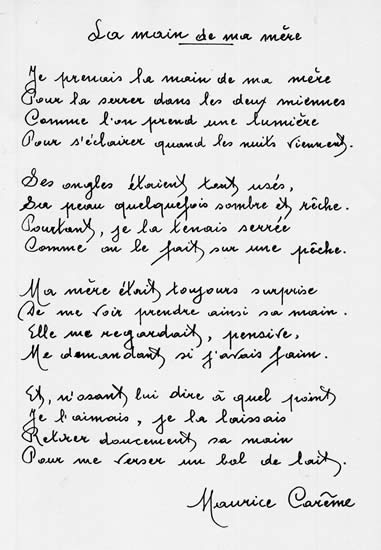 La main de ma mère
Je prenais la main de ma mère
Pour la serrer dans les deux miennes
Comme l'on prend une lumière
Pour s'éclairer quand les nuits viennent.
Ses ongles étaient tant usés,
Sa peau quelquefois sombre et rêche.
Pourtant, je la tenais serrée
Comme on le fait sur une pêche.
Ma mère était toujours surprise
De me voir prendre ainsi sa main.
Elle me regardait, pensive,
Me demandant si j'avais faim.
Et, n'osant lui dire à quel point
Je l'aimais, je la laissais
Retirer doucement sa main
Pour me verser un bol de lait.
Maurice Carême